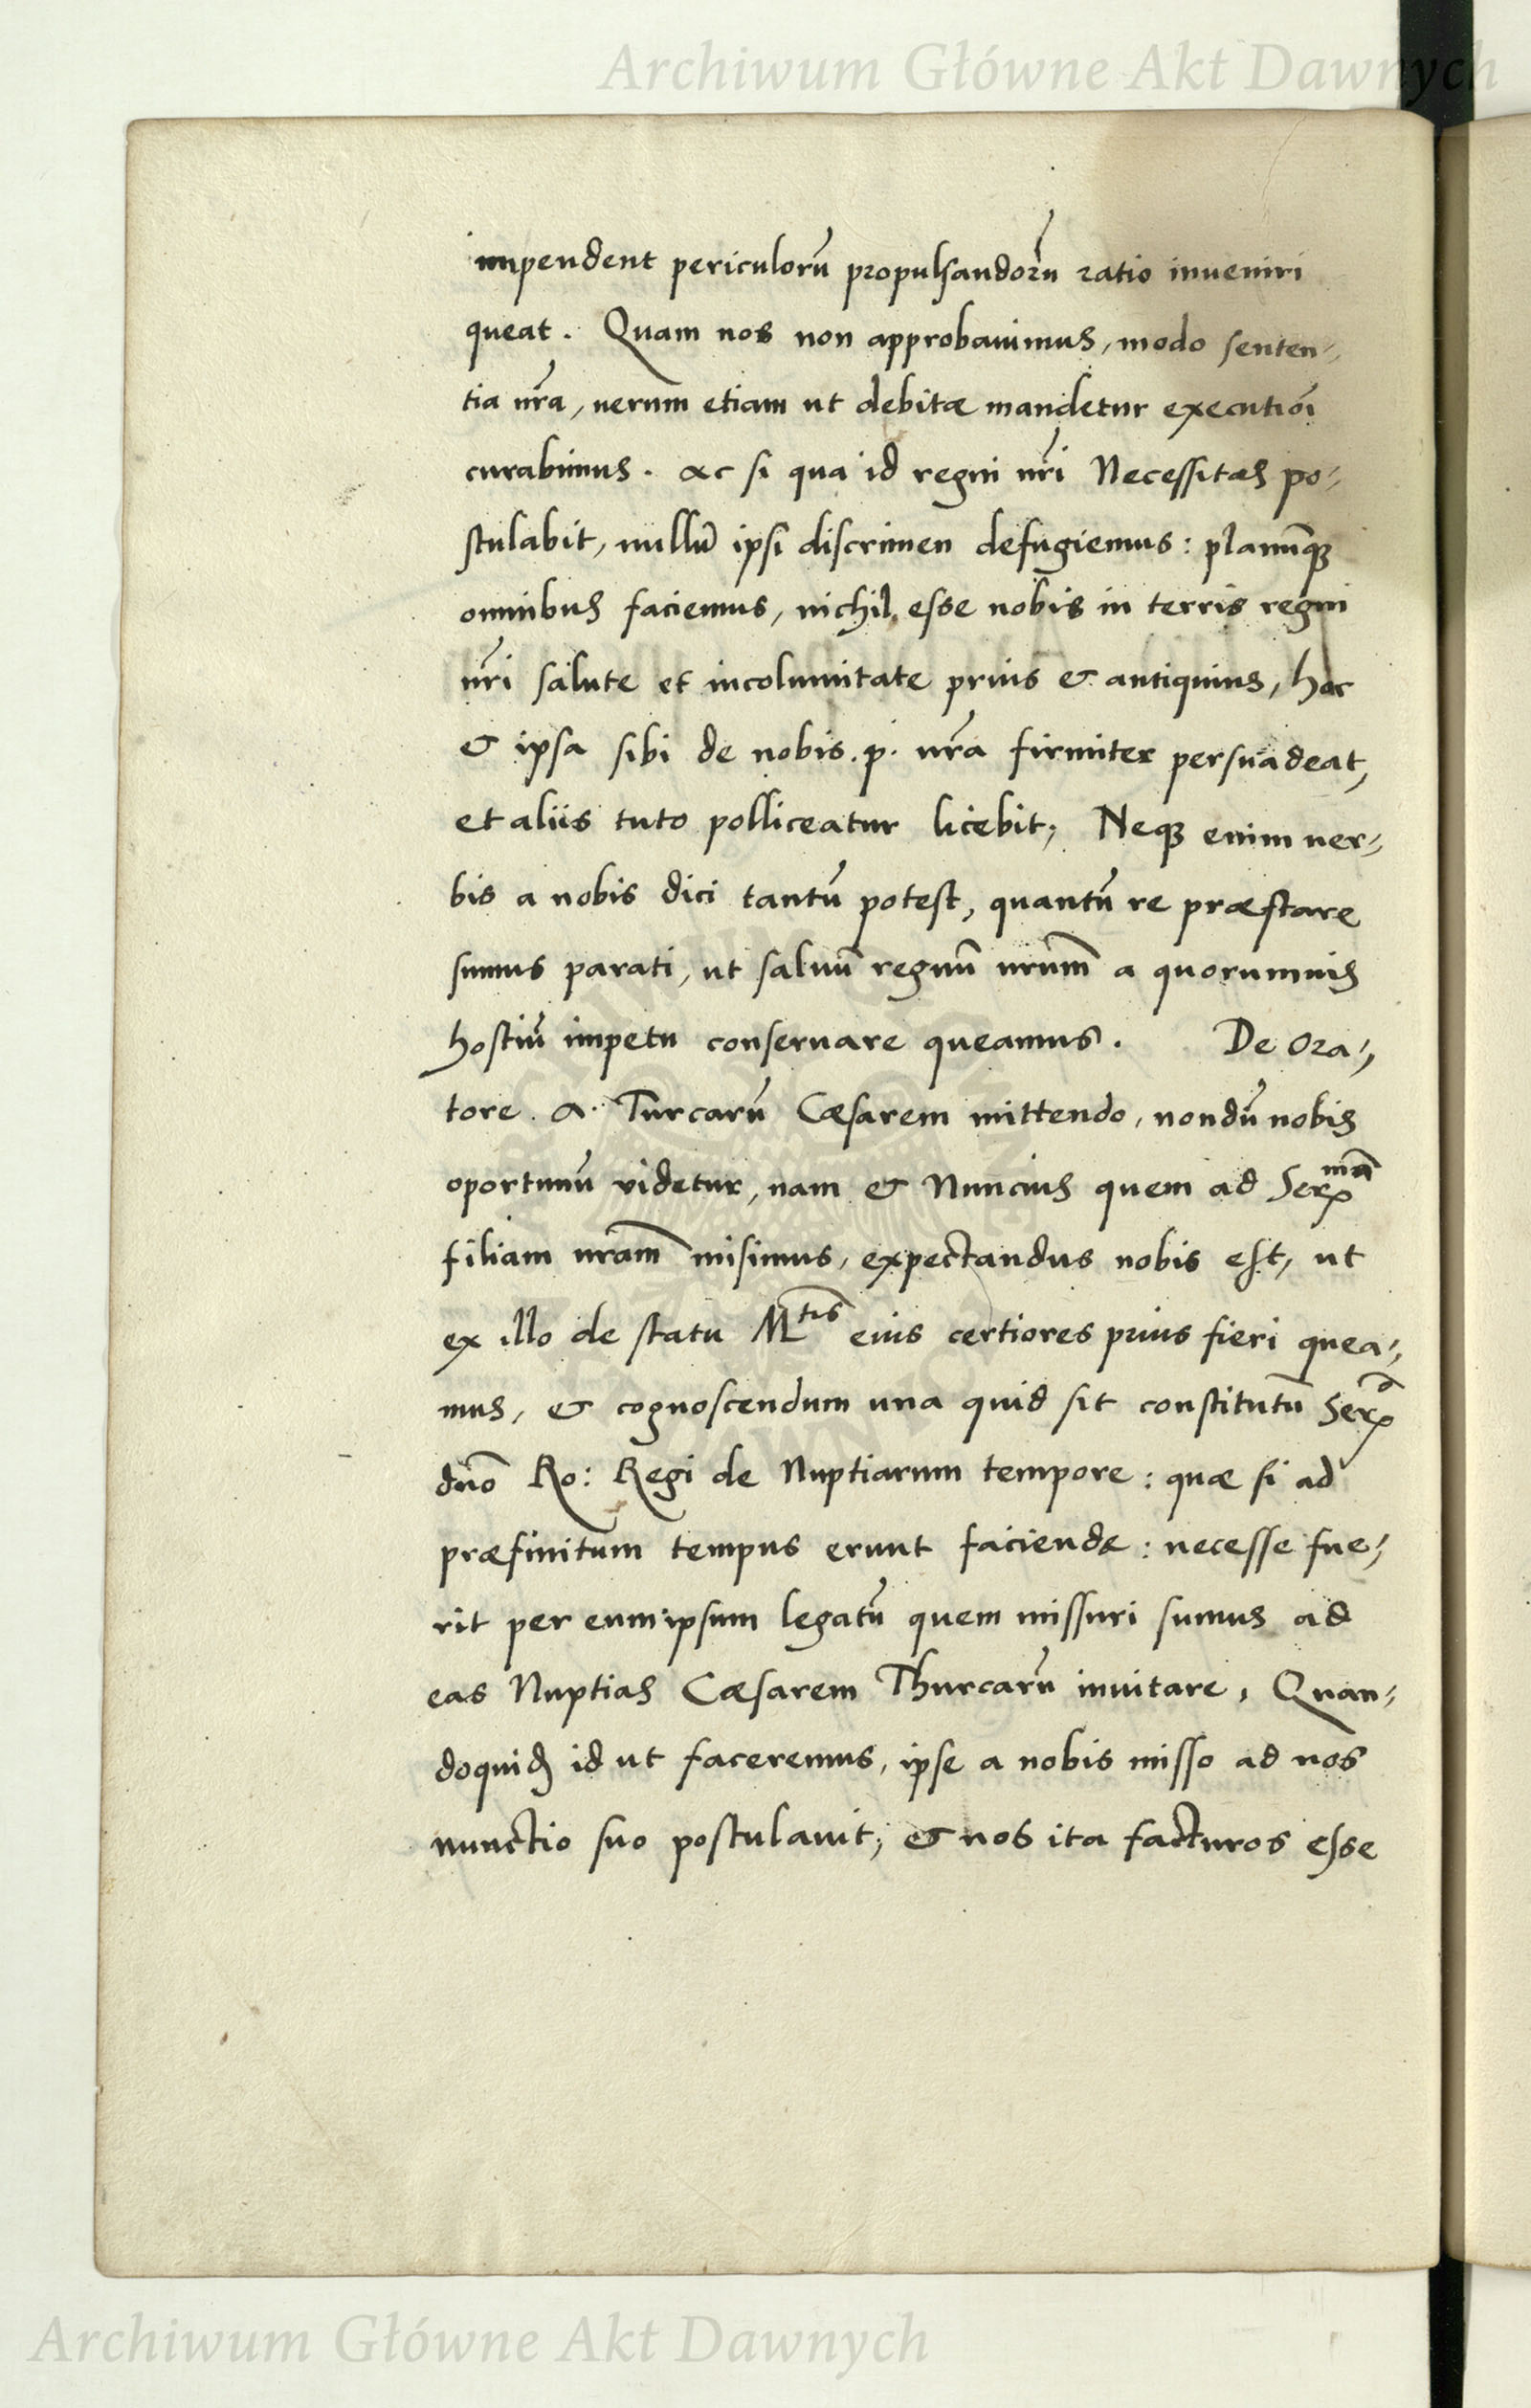 Archiwum Główne Akt Dawnych
impendent periculorũ propulsandorũ ratio inueniri
queat. Quam nos non approbauimus, modo senten-
tia nr̃a, uerum etiam ut debitæ mandetur executiõi
curabimus. ac si qua id regni nr̃i Necessitas po-
stulabit, nullũ ipsi discrimen defugiemus: planumq̃
omnibus faciemus, nichil esse nobis in terris regni
nr̃i salute et incolumitate prius & antiquius, hoc
& ipsa sibi de nobis .p. nr̃a firmiter persuadeat,
et aliis tuto polliceatur licebit; Neq enim uer-
bis a nobis dici tantũ potest, quantũ re præstare
sumus parati, ut saluũ regnũ nrum̃ a quorumuis
hostiũ impetu conseruare queamus. De Ora-
tore . a. Turcarũ Cæsarem mittendo, nondũ nobis
oportunũ videtur, nam & Nuncius quem ad Ser mã
filiam nram̃ misimus, expectandus nobis est, ut
ex illo de statu M tis eius certiores prius fieri quea-
mus, & cognoscendum una quid sit constitutũ Ser o
dño Ro: Regi de Nuptiarum tempore: quæ si ad
præfinitum tempus erunt faciendæ: necesse fue-
rit per eum ipsum legatũ quem missuri sumus ad
eas Nuptias Cæsarem Thurcarũ inuitare, Quan-
doquid id ut faceremus, ipse a nobis misso ad nos
nunctio suo postulauit; & nos ita facturos esse
Archiwum Główne Akt Dawnych